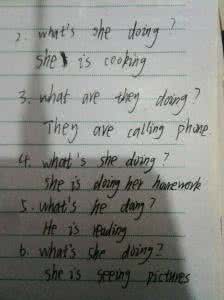 2. what's she doing?
she is cooking
3. what are they doing?
They are calling phone
4. what's she doing?
she is doing her homework
5. what's he dang?
He is reading
6. what's she doing?
she is seeing pictures